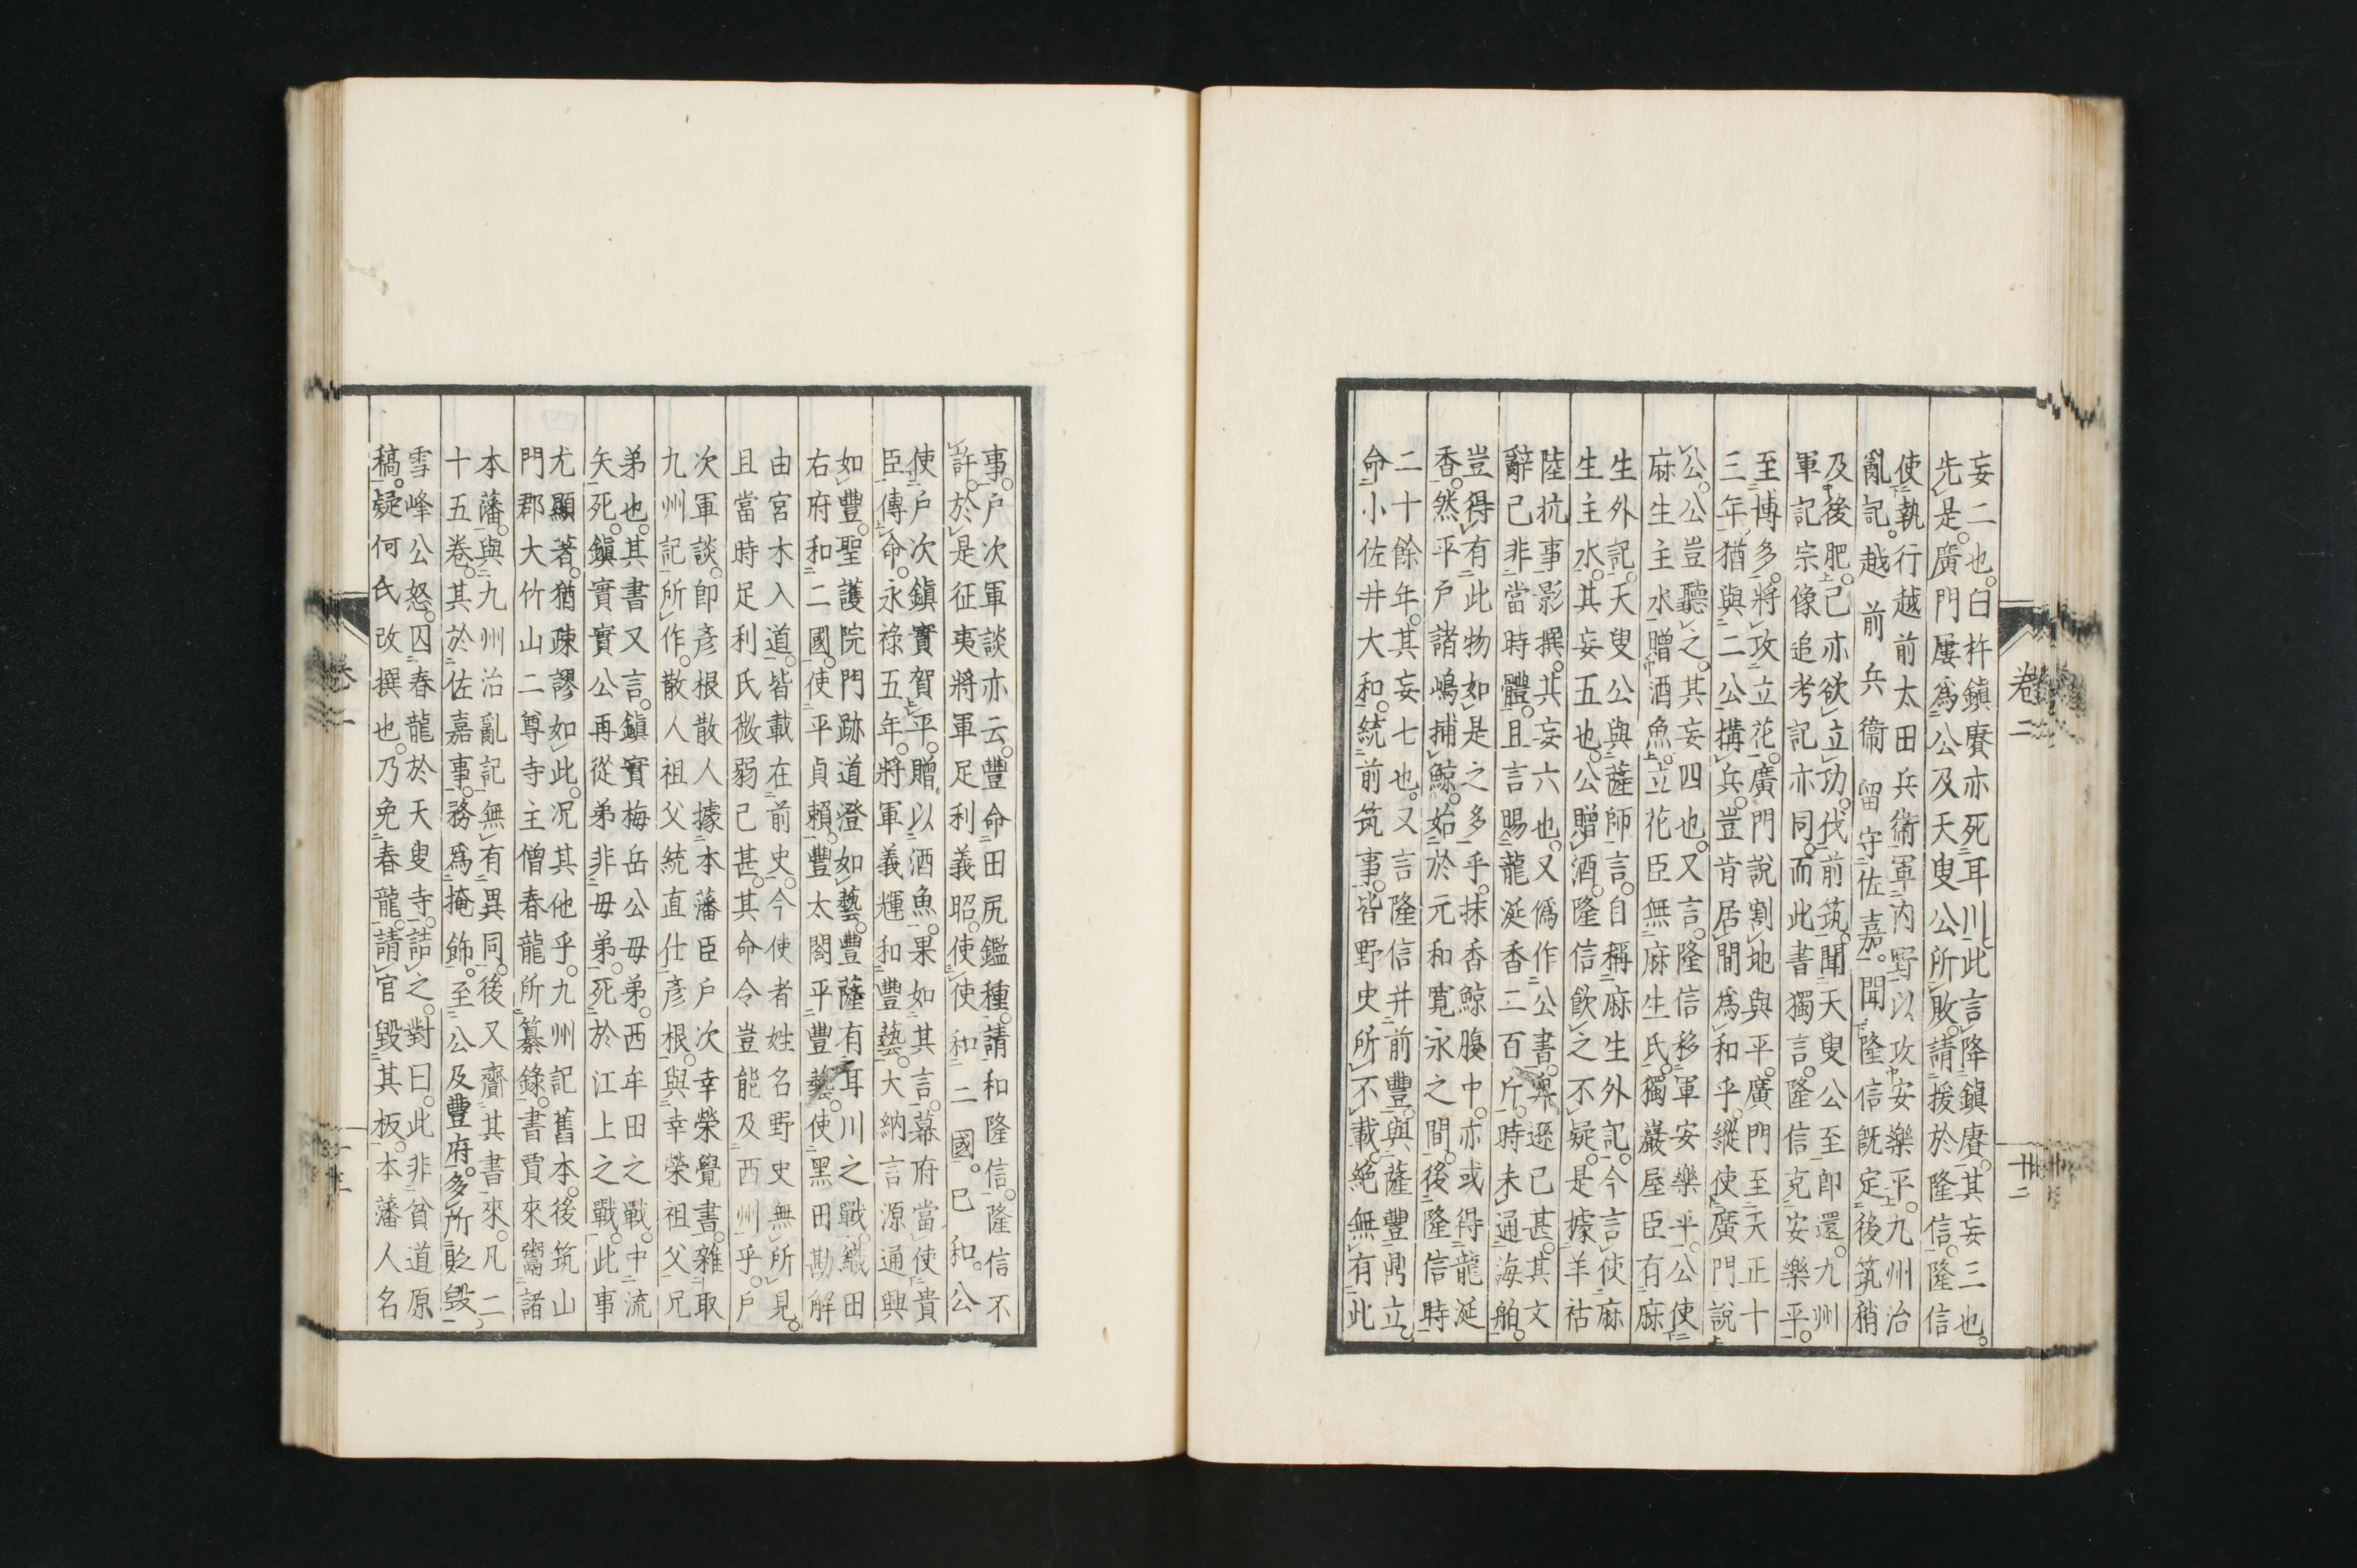 妄二也。臼杵鎮賡亦死耳川此言降鎮賡。其妄三也。
先是。廣門屢爲公及天叟公所敗。請援於隆信。隆信
使執行越前太田兵衞軍内野以攻安樂平。九州治
亂記。越前兵衞留守佐嘉。聞隆信既定後筑稍
及後肥。己亦欲立功。伐前筑。聞天叟公至即還。九州
軍記宗像追考記亦同。而此書獨言。隆信克安樂平。
至博多。將攻立花。廣門說割地與平。廣門至天正十
三年猶與二公搆兵。豈肯居間爲和乎。縱使廣門說
公。公豈聽之。其妄四也。又言。隆信移軍安樂平。公使
麻生主水贈酒魚。立花臣無麻生氏。獨巖屋臣有麻
生外記。天叟公與薩師言。自稱麻生外記。今言使麻
生主水。其妄五也。公贈酒。隆信飲之不疑。是據羊祜
陸抗事影撰。其妄六也。又僞作公書。興遜已甚。其文
辭己非當時體。且言賜龍涎香二百斤。時未通海舶。
豈得有此物如是之多乎。抹香鯨腹中。亦或得龍涎
香。然平戸諸嶋捕鯨。始於元和寛永之間。後隆信時
二十餘年。其妄七也。又言隆信并前豐。與薩豐鼎立
命小佐井大和。統前筑事。皆野史所不載。絶無有此
事。戸次軍談亦云。豐命田尻鑑種。請和隆信。隆信不
許。於是征夷將軍足利義昭。使使和二國。已和。公
使戸次鎮實賀平。贈以酒魚。果如其言。幕府當使貴
臣傳命。永祿五年。將軍義輝和豐藝。大納言源通興
如豐。聖護院門跡道澄如藝。豐薩有耳川之戰。織田
右府和二國。使平貞頼。豐太閤平豐藝。使黑田勘解
由宮木入道。皆載在前史。今使者姓名野史無所見。
且當時足利氏微弱已甚。其命令豈能及西州乎。戸
次軍談。即彦根散人據本藩臣戸次幸榮覺書。雜取
九州記所作。散人祖父統直仕彦根。與幸榮祖父兄
弟也。其書又言。鎮實梅岳公毋弟。西牟田之戰。中流
矢死。鎮實實公再從弟非毋弟。死於江上之戰。此事
尤顯著。猶疎謬如此。况其他乎。九州記舊本。後筑山
門郡大竹山二尊寺主僧春龍所纂錄。書賈來鬻諸
本藩。與九州治亂記無有異同。後又齎其書來。凡二
十五卷。其於佐嘉事。務爲掩飾。至公及豐府。多所貶毀
雪峰公怒。囚春龍於天叟寺。詰之。對曰。此非貧道原
稿。疑何氏改撰也。乃免春龍。請官毀其板。本藩人名
卷二
卅二